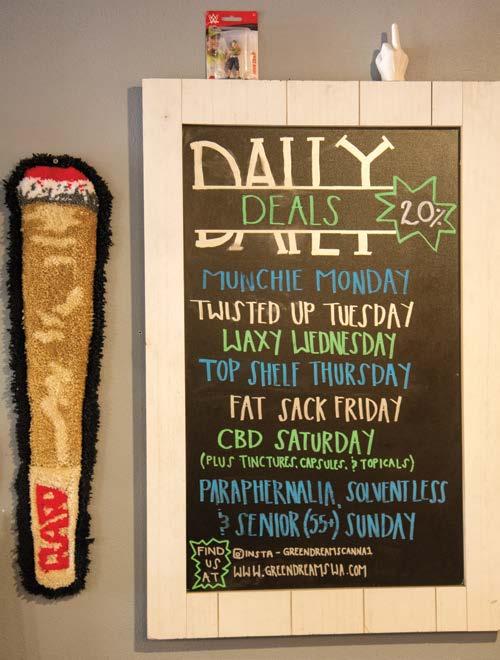 DAILY
DEALS
20%
MUNCHIE MONDAY
TWISTED UP TUESDAY
WAXY WEDNESDAY
TOP SHELF THURSDAY
FAT SACK FRIDAY
CBD SATURDAY
(PLUS TINCTURES, CAPSULES, & TOPICALS)
PARAPHERNALIA, SOLVENTLESS
& SENIOR (55+) SUNDAY
FIND
US
AT
@INSTA - GREENDREAMSCANNA1
WWW.GREENDREAMSWA.COM
RAW